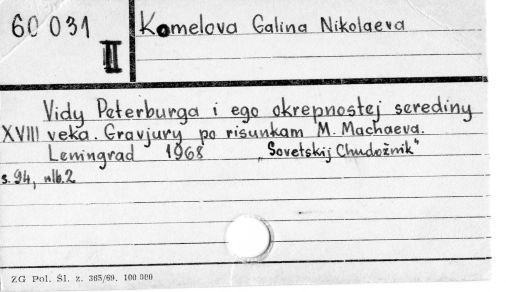 60 031
II
Komelova Galina Nikolaeva
Vidy Peterburga i ego okrepnostej serediny
XVIII veka. Gravjury po risunkam M. Machaeva.
Leningrad 1968 „Sovetskij Chudožnik"
s. 94, nlb. 2
ZG Pol. Śl. z. 365/69. 100 000